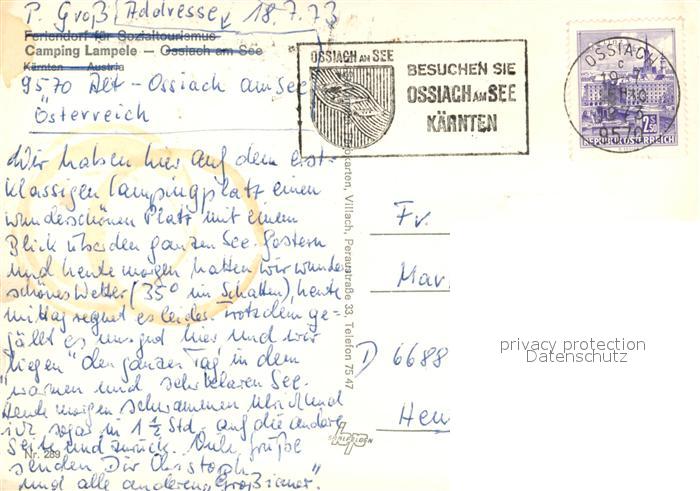 P. Groß (Addresse) 18.7.73
Feriendorf für Sozialtourismus
Camping Lampele — Ossiach am See
Kärnten Austria
9570 Alt-Ossiach am See
Österreich
Wir haben hier auf dem erst-
klassigen Campingplatz einen
wunderschönen Platz mit einem
Blick über den ganzen See. Gestern
und heute morgen hatten wir wunder
schönes Wetter (35° im Schatten), heute
mittag regnet es leider. Trotzdem ge-
fällt es uns gut hier und wir
"liegen" den ganzen Tag in dem
warmen und sehr klaren See.
Heute morgen schwammen Ulrich und
ich sogar in 1½ Std. auf die andere
Seite und zurück. Viele Grüße
senden Dir Christoph
und alle anderen "Großianer".
Nr. 289
OSSIACH AM SEE
BESUCHEN SIE
OSSIACH AM SEE
KÄRNTEN
OSSIACH
c
9570
2S
REPUBLIK ÖSTERREICH
Villach, Peraustraße 33, Telefon 75 47
Fr.
Mar
D 6688
Heu
privacy protection
Datenschutz